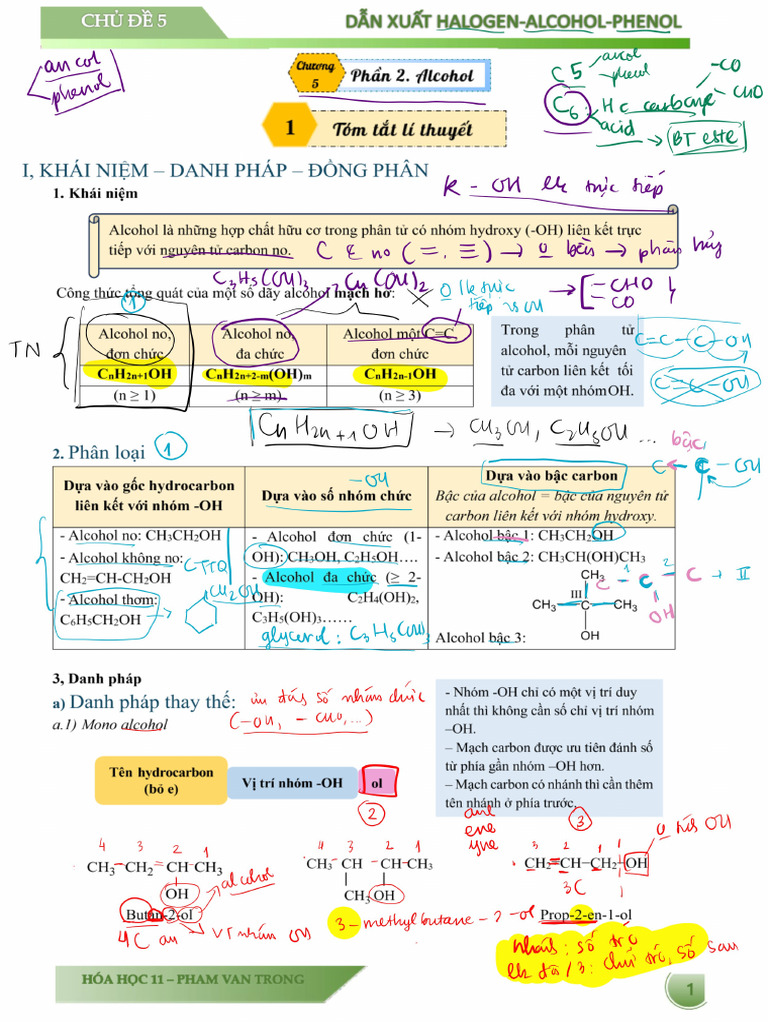 CHỦ ĐỀ 5
DẪN XUẤT HALOGEN-ALCOHOL-PHENOL
ancol
phenol
Chương 5
Phần 2. Alcohol
C5 ancol
phenol
C6 Hc carbonyl -CO
CHO
acid → BT este
1
Tóm tắt lí thuyết
I, KHÁI NIỆM – DANH PHÁP – ĐỒNG PHÂN
R - OH lk trực tiếp
1. Khái niệm
Alcohol là những hợp chất hữu cơ trong phân tử có nhóm hydroxy (-OH) liên kết trực
tiếp với nguyên tử carbon no.
C k no (=, ≡) → 0 bền → phân hủy
C3H5(OH)3
→ CHO
CO
Công thức tổng quát của một số dãy alcohol mạch hở:
0 lk trực
tiếp vs OH
1
TN
Alcohol no, đơn chức
Alcohol no, đa chức
Alcohol một C=C, đơn chức
CnH2n+1OH
CnH2n+2-m(OH)m
CnH2n-1OH
(n ≥ 1)
(n ≥ m)
(n ≥ 3)
Trong phân tử
alcohol, mỗi nguyên
tử carbon liên kết tối
đa với một nhóm OH.
C=C-C-OH
C=C-OH
CnH2n+1OH → CH3OH, C2H5OH ...
2. Phân loại 1
bậc
C - C - OH
Dựa vào gốc hydrocarbon
liên kết với nhóm -OH
-OH
Dựa vào số nhóm chức
Dựa vào bậc carbon
Bậc của alcohol = bậc của nguyên tử
carbon liên kết với nhóm hydroxy.
- Alcohol no: CH3CH2OH
- Alcohol không no:
CH2=CH-CH2OH
- Alcohol thơm:
C6H5CH2OH
CTTQ
CH2OH
- Alcohol đơn chức (1-
OH): CH3OH, C2H5OH….
- Alcohol đa chức (≥ 2-
OH): C2H4(OH)2,
C3H5(OH)3……
glycerol: C3H5(OH)3
- Alcohol bậc 1: CH3CH2OH
- Alcohol bậc 2: CH3CH(OH)CH3
CH3
III
CH3 C CH3
OH
Alcohol bậc 3:
C - C - C → II
1 2
OH
3, Danh pháp
a) Danh pháp thay thế: ưu đánh số nhóm chức
(-OH, -CHO, ...)
a.1) Mono alcohol
- Nhóm -OH chỉ có một vị trí duy
nhất thì không cần số chỉ vị trí nhóm
–OH.
– Mạch carbon được ưu tiên đánh số
từ phía gần nhóm –OH hơn.
– Mạch carbon có nhánh thì cần thêm
tên nhánh ở phía trước.
Tên hydrocarbon
(bỏ e)
Vị trí nhóm -OH
ol
2
ane
ene
yne
3
4 3 2 1
CH3 CH2 CH CH3
OH
Butan-2-ol
alcohol
4C an
VT nhóm OH
4 3 2 1
CH3 CH CH CH3
CH3 OH
3-methylbutane-2-ol
3 2 1
CH2=CH-CH2-OH
3C
Prop-2-en-1-ol
nhánh: số trc
lk đôi/3: chữ trc, số sau
HÓA HỌC 11 – PHAM VAN TRONG
1